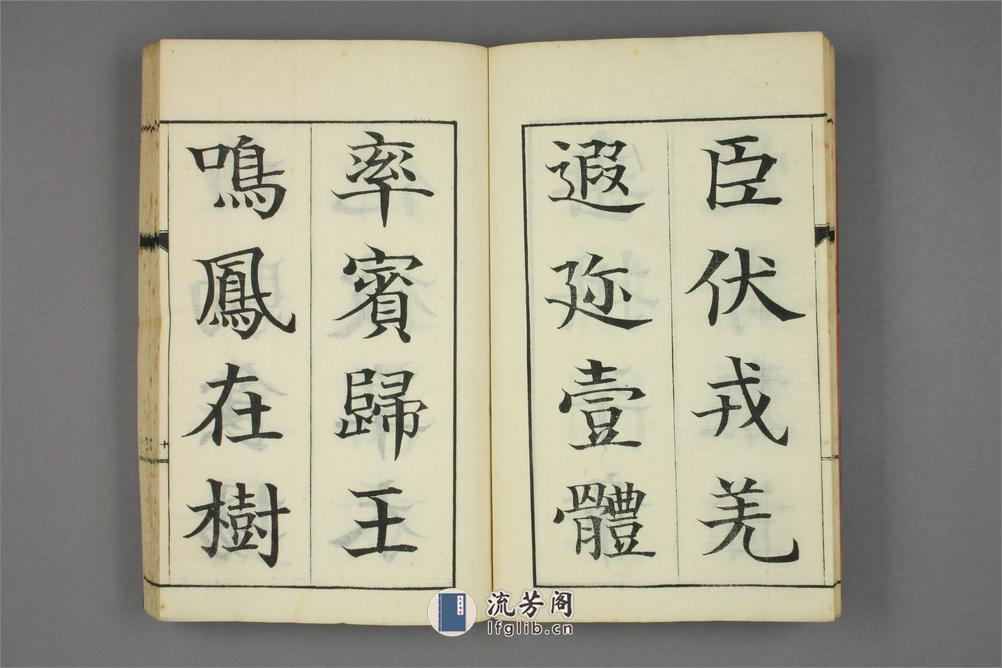 臣伏戎羌
遐迩壹體
率賓歸王
鳴鳳在樹
十
流芳阁
lfglib.cn